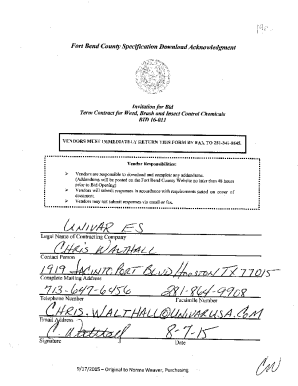 Fort Bend County Specification Download Acknowledgment
Invitation for Bid
Term Contract for Weed, Brush and Insect Control Chemicals
BID 16-011
VENDORS MUST IMMEDIATELY RETURN THIS FORM BY FAX TO 281-341-8645.
Vendor Responsibilities:
Vendors are responsible to download and complete any addendums.
(Addendums will be posted on the Fort Bend County Website no later than 48 hours
prior to Bid Opening)
Vendors will submit responses in accordance with requirements stated on cover of
document.
Vendors may not submit responses via email or fax.
UNIVAR ES
Legal Name of Contracting Company
CHRIS WALTHALL
Contact Person
1919 JACINTOPORT BLVD HOUSTON TX 77015
Complete Mailing Address
713-647-6456 281-864-9908
Telephone Number Facsimile Number
CHRIS.WALTHALL@UNIVARUSA.COM
Email Address
C Walthall 8-7-15
Signature Date
9/27/2005 – Original to Norma Weaver, Purchasing
CW